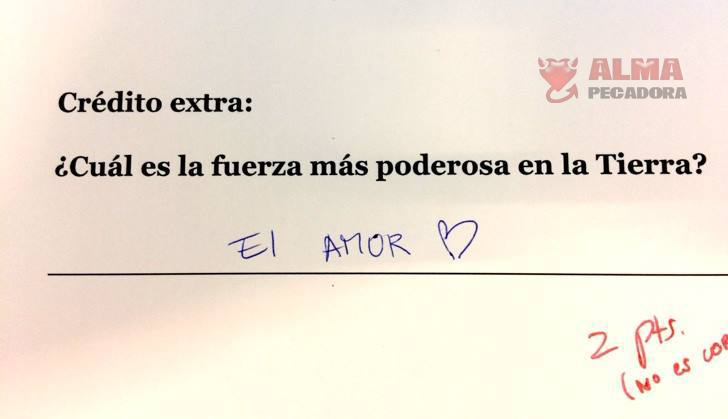 ALMA
PECADORA
Crédito extra:
¿Cuál es la fuerza más poderosa en la Tierra?
El AMOR
2 pts.
(No es